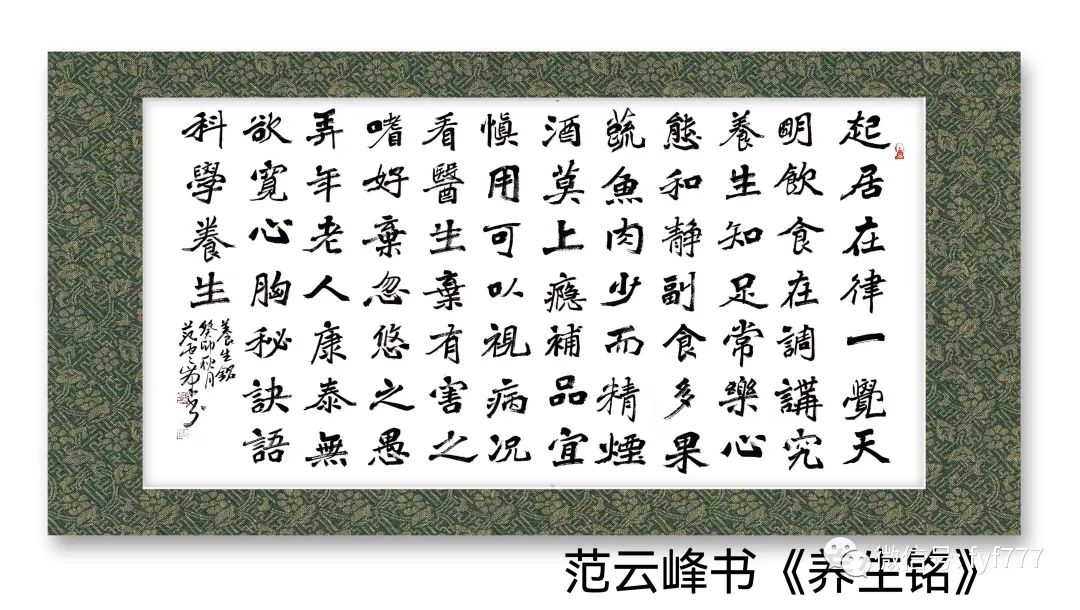 起居在律一覺天
明飲食在調講究
養生知足常樂心
態和静副食多果
蔬魚肉少而精煙
酒莫上瘾補品宜
慎用可以視病况
看醫生棄有害之
嗜好棄忽悠之愚
弄年老人康泰無
欲寬心胸秘訣語
科學養生
養生銘
癸卯秋月
范云峰书《养生铭》
微信号:fyf777